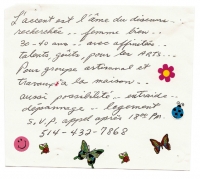 L'accent est l'âme du discours
recherchée.. femme lien..
30-40 ans.. avec affinités..
talents, goûts, pour les ARTS...
Pour groupe artisanal et
travaux à la maison...
aussi possibilité.. entraide..
dépannage.. logement
S.V.P. appel après 18 hrs PM..
514-432-7868